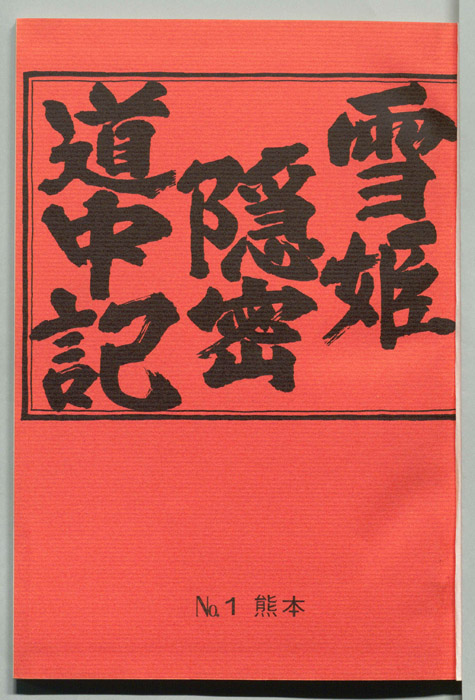 雪姫
隠密
道中記
No.1 熊本